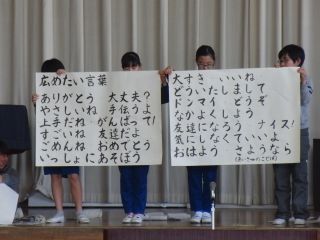 広めたい言葉
ありがとう 大丈夫?
やさしいね 手伝うよ
上手だね がんばって!
すごいね 友達だよ
ごめんね おめでとう
いっしょにあそぼう
大すき いいね
どういたしまして
ドンマイ どうぞ
なかよくしよう
友達になろう ナイス!
気にしなくていいよ
おはよう さようなら
(あいさつのことば)